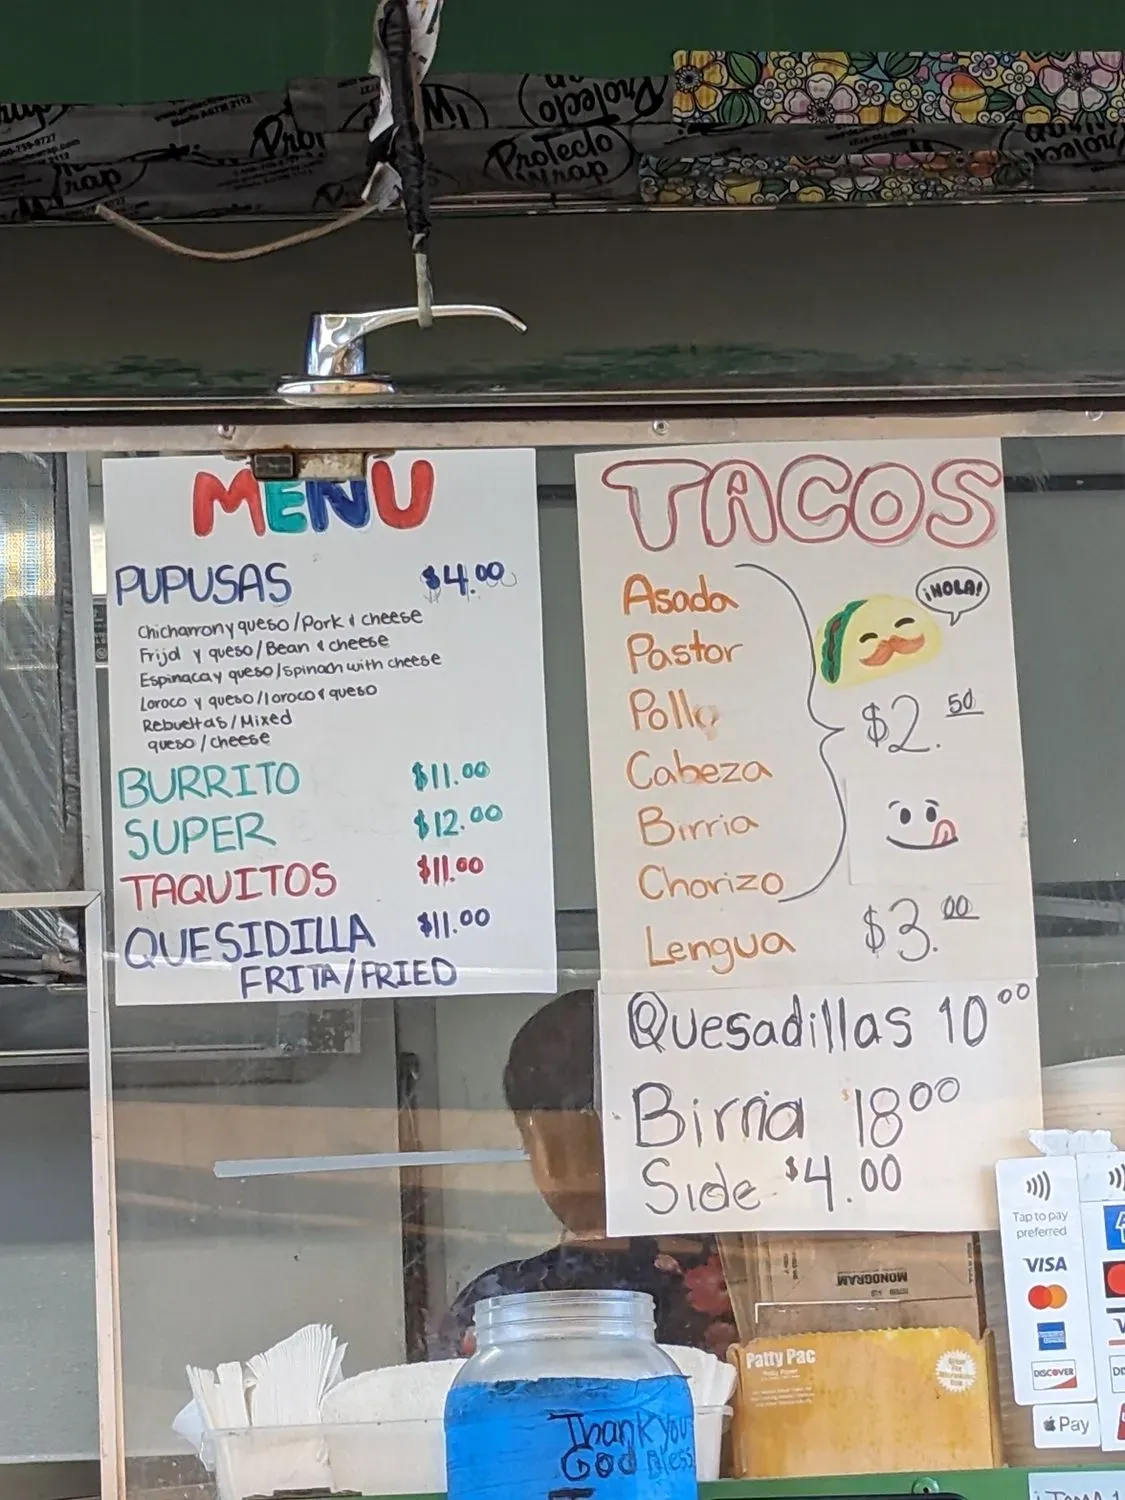 Protecto
Wrap
MENU
PUPUSAS $4.00
Chicharron y queso/Pork & cheese
Frijol y queso/Bean & cheese
Espinaca y queso/spinach with cheese
Loroco y queso/loroco & queso
Rebueltas/Mixed
queso/cheese
BURRITO $11.00
SUPER $12.00
TAQUITOS $11.00
QUESIDILLA $11.00
FRITA/FRIED
TACOS
Asada
¡HOLA!
Pastor
Pollo
$2.50
Cabeza
Birria
Chorizo
Lengua $3.00
Quesadillas 10.00
Birria $18.00
Side $4.00
Tap to pay
preferred
VISA
DISCOVER
Pay
MONOGRAM
Patty Pac
Thank you
God bless